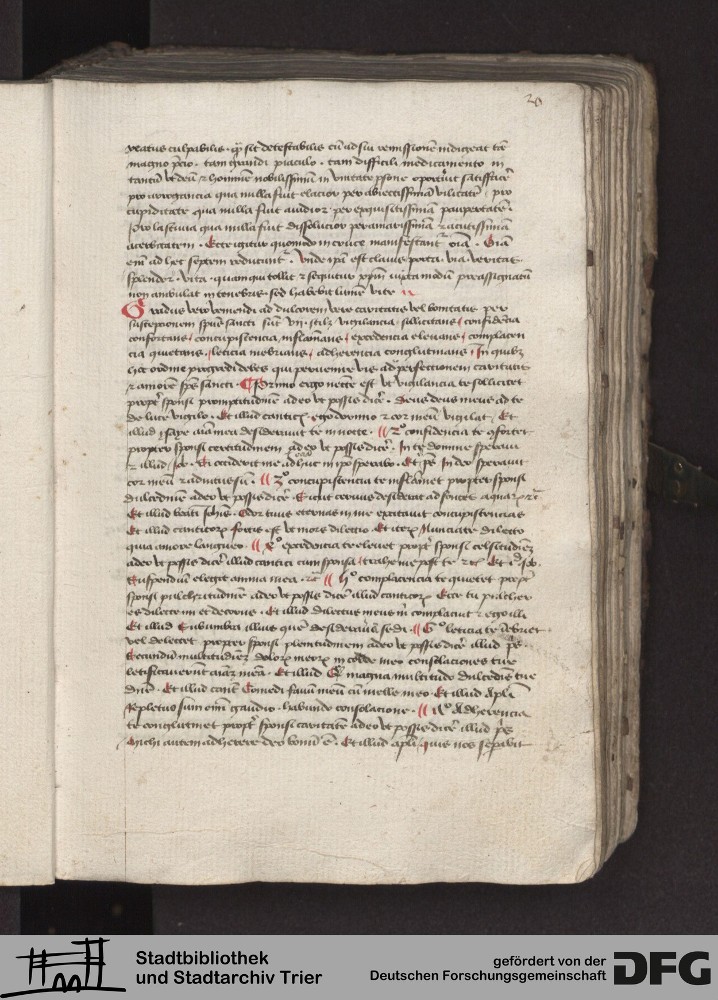 20
reatus culpabilis · qͣ sit detestabilis cū ad sui remissionem indigeat tā
magno p̄cio · tam grandi piaculo · tam difficili medicamento
tantū vt deū ⁊ hominem nobilissimū in vnitate psone oportuit satisfacē
pro arrogancia qua nulla fuit elacior per abiectissimā vilitatē · pro
cupiditate qua nulla fuit auidior · per exquisitissimā paupertatē ·
Pro lasciuia qua nulla fuit dissolucior per amarissimā ⁊ acutissimā
acerbitatem · Ecce igitur quomodo in cruce manifestant̄ oīa · Oīa
em̄ ad hec septem reducunt̄ · Vnde ipā est clauis porta · via veritas
splendor · vita · quam qui tollit ⁊ sequitur xp̄m iuxta modū preassignatū
non ambulat in tenebris · sed habebit lumē vite
Gradus vero veniendi ad dulcorem vere caritatis vel bonitatis per
suscepcionem spūs sancti sūt vij · scilz vigilancia sollicitans confidēcia
confortans concupiscencia inflāmans excedencia eleuans complacen
cia quietans leticia inebrians adherencia conglutinans In quibz
hoc ordine progredi debes qui peruenire vis ad perfectionem caritatis
⁊ amorē spūs sancti · Primo ergo necesse est vt vigilancia te sollicitet
propt̄ sponsi promptitudinē adeo vt possis dicē · Deus deus meus ad te
de luce vigilo · Et illud canticoꝝ · ego dormio ⁊ cor meū vigilat · Et
illud ysaye aīa mea desiderauit te in nocte · 2º confidencia te cōfortet
propter sponsi certitudinem adeo vt possis dicē · In te domine speraui
⁊ illud Job · Et si occiderit me adhuc in ipō sperabo · Et ps̄ In deo sperauit
cor meū ⁊ adiutus sū · 3º concupiscencia te inflāmet propter sponsi
dulcedinē adeo vt possis dicē · Sicut ceruus desiderat ad fontes aquaꝝ ⁊c̄
quia amore langueo · 4º excedencia te eleuet propt̄ sponsi celsitudinē
adeo vt possis dicē illud cantici cum sponsa trahe me post te ⁊c̄ · Et Job ·
Suspendiū elegit anima mea · ⁊c̄ 5º complacencia te quietet propt̄
sponsi pulchritudinē adeo vt possis dicē illud canticoꝝ Ecce tu pulcher
es dilecte mi et decorus · Et illud dilectus meus m̄ complacuit ⁊ ego illi
Et illud Sub vmbra illius quē desideraui sedi · 6º leticia te inebriet
vel delectet propter sponsi plenitudinem adeo vt possis dicē illud ps̄ ·
Secundū multitudinē doloꝝ meoꝝ in corde meo consolaciones tue
letificauerūt aīam meā · Et illud Qͣ magna multitudo dulcedis tue
dn̄e · Et illud cant̄ Comedi fauū meū cū melle meo · Et illud Apl̄i
Repletus sum em̄ gaudio · habundo consolacione · 7º Adherencia
te conglutinet propt̄ sponsi caritatē adeo vt possis dicē illud ps̄
Michi autem adherere deo bonū ē · Et illud apl̄i quis nos separabit
Stadtbibliothek
und Stadtarchiv Trier
gefördert von der
Deutschen Forschungsgemeinschaft
DFG